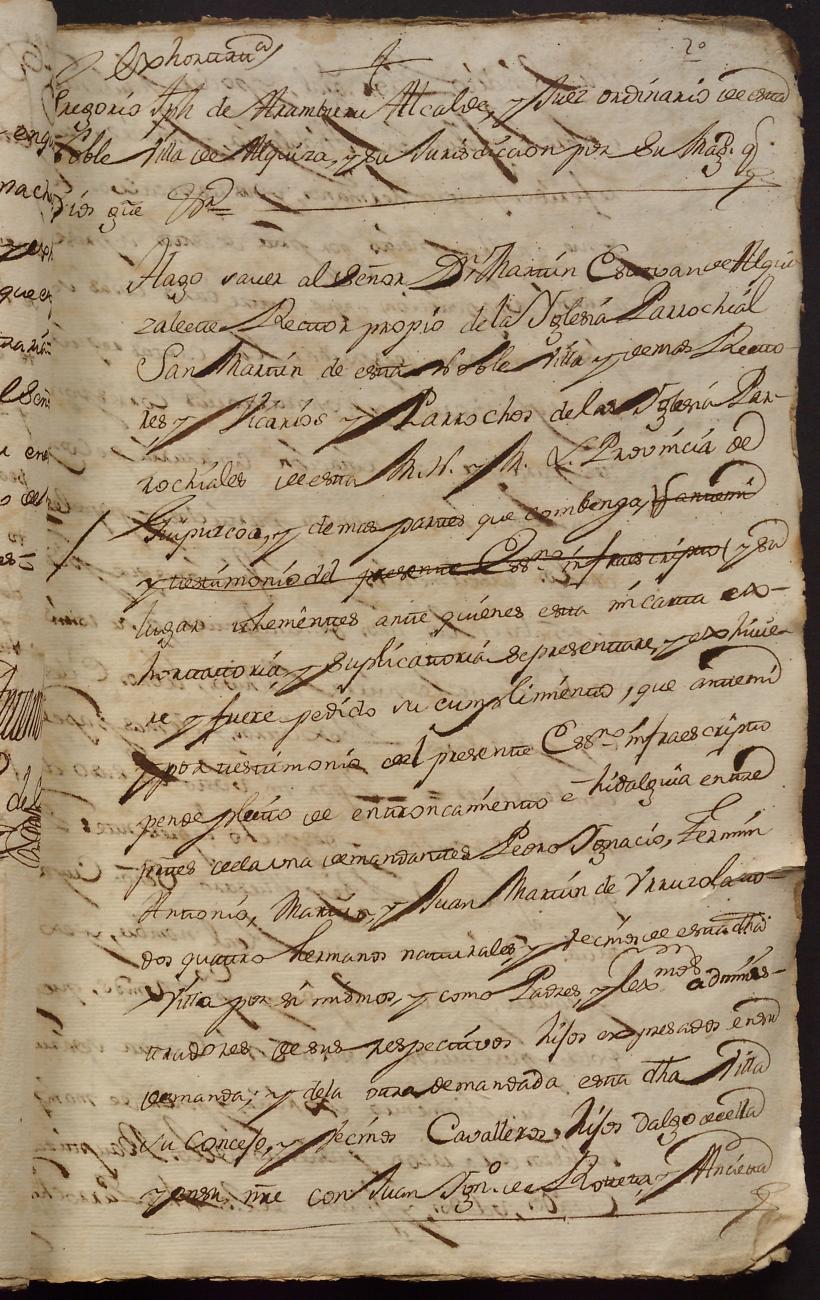 Exhortttª 2º
Gregorio Jph de Aramburu Alcalde, y Juez ordinario de esta
Noble Villa de Alquiza, y su Jurisdiccion por Su Magd. q
Dios gue
Hago saver al Señor Dn Martin Estevan de Alqui
zalete Rector propio de la Yglesia Parrochial
San Martin de esta Noble Villa y demas Recto-
res y Vicarios y Parrochos de las Yglesia Par-
rochiales de esta M. N. y M. L. Provincia de
Guipuzcoa, y demas partes que combenga,
y testimonio del presente Essno infraescripto y su
lugar thenientes ante quienes esta mi carta ex-
hortatoria, y suplicatoria se presentare, y exhivie-
re y fuere pedido su cumplimiento, que antemi
y por testimonio del presente Essno infraescripto
pende pleito de entroncamiento e hidalguia entre
ptes de la una demandantes Pedro Ygnacio, Fermin
Antonio, Martin, y Juan Martin de Yrruzola to-
dos quatro hermanos naturales, y vecinos de esta dha
Villa por si mismos, y como Padres, y lexmos adminis-
tradores de sus respectivos hijos expresados en su
demanda; y dela otra demandada esta dha Villa
su Concejo, y vecinos Cavalleros hijos dalgo de ella
y en su nre con Juan Ygno. de y Ancieta